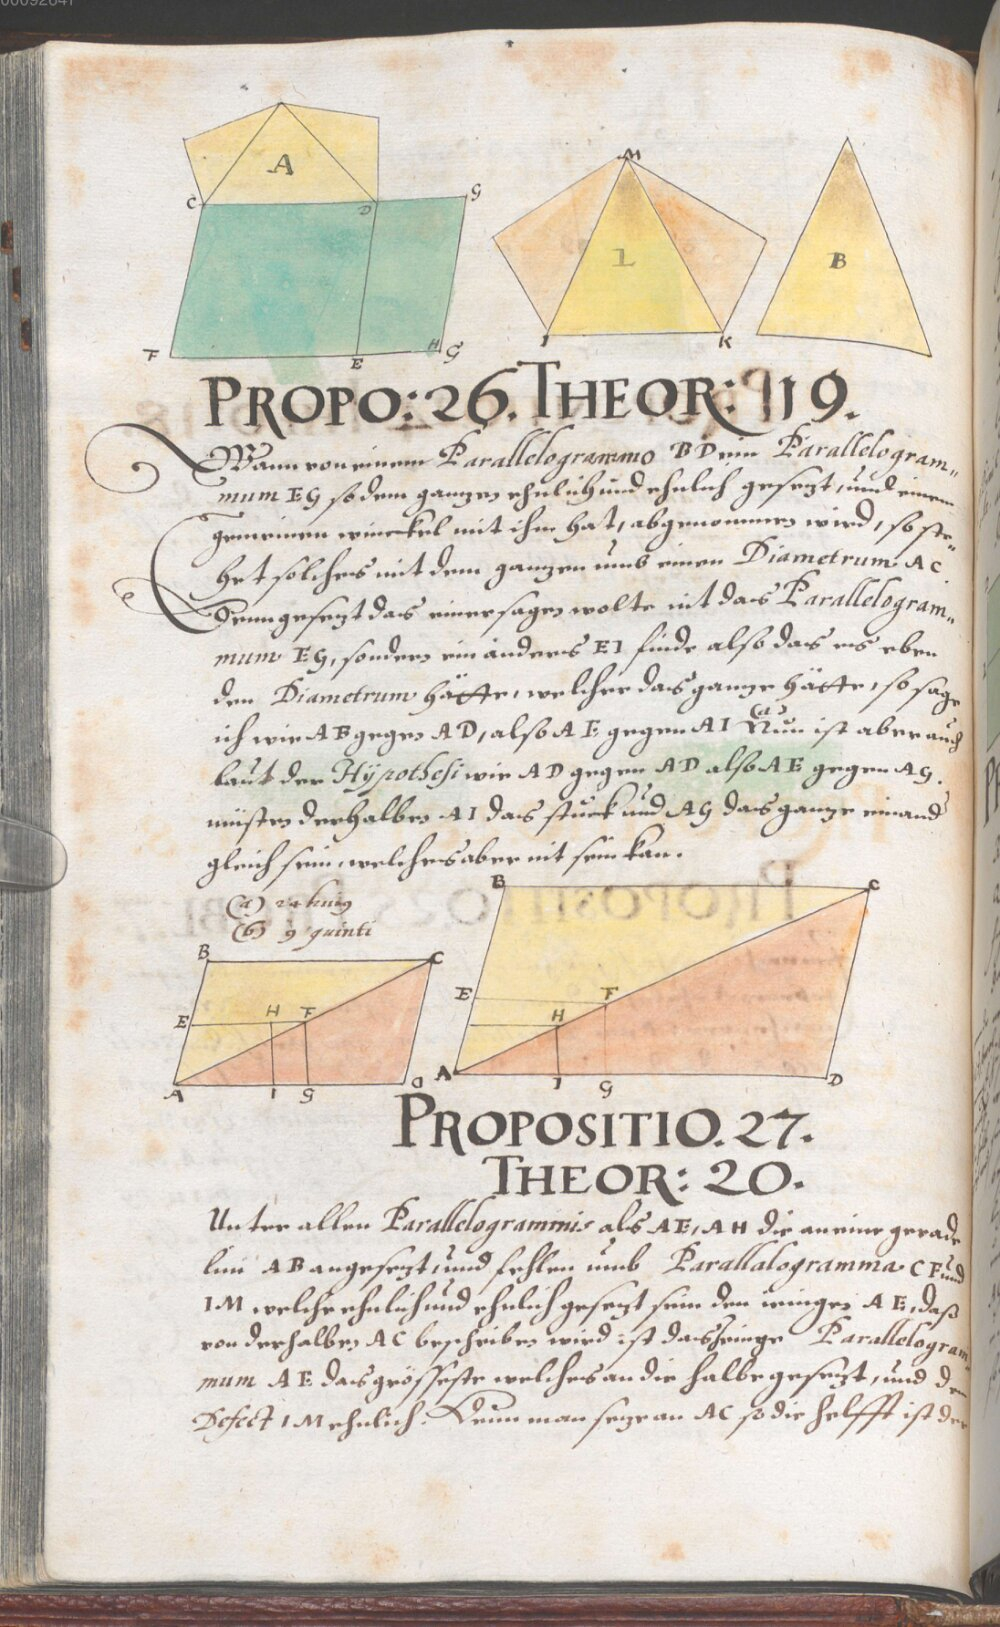 A
C
D
G
F
E
H
G
M
L
I
K
B
PROPO: 26. THEOR: 119.
Wann von einem Parallelogrammo BD ein Parallelogram„
mum EG so dem ganzen ehnlich und ehnlich gesezt, unnd einen
gemeinen winckel mit ihm hat, abgenommen wird, so ste„
het solches mit dem ganzen umb einen Diametrum AC.
Denn gesezt das einer sagen wolte nit das Parallelogram„
mum EG, sondern ein anders EI finde also das es eben
den Diametrum hätte, welcher das ganze hätte, so sage
ich wie AB gegen AD, also AE gegen AI (a) Nun ist aber auch
laut der Hÿpothesi wie AD gegen AD also AE gegen AG.
müsten derhalben AI das stuck und AG das ganze einand
gleich sein, welches aber nit sein kan.
(a) 24 huius
(b) 9 quinti
B
C
E
H
F
A
I
G
D
B
C
E
F
H
A
I
G
D
PROPOSITIO. 27.
THEOR: 20.
Unter allen Parallelogrammis als AE, AH die an eine gerade
lini AB angesezt, unnd fehlen umb Parallalogramma CF und
IM welche ehnlich und ehnlich gesezt sein dem ienigen AE, daß
von der halben AC beschriben wird ist das ienige Parallelogram„
mum AE das grösseste welches an die halbe gesezt, und dem
Defect IM ehnlich. Denn man seze an AC so die helfft ist der